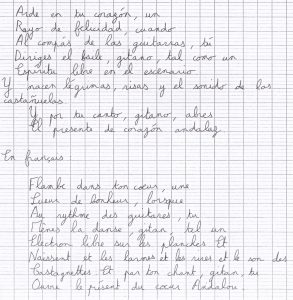 Arde en tu corazón, un
Rayo de felicidad, cuando
Al compás de las guitarras, tú
Diriges el baile, gitano, tal como un
Espíritu libre en el escenario
Y nacen légrimas, risas y el sonido de las
castañuelas.
Y por tu canto, gitano, abres
El presente de corazón andaluz
En français
Flambe dans ton cœur, une
Lueur de bonheur, lorsque
Au rythme des guitares, tu
Mènes la danse, gitan, tel un
Electron libre sur les planches Et
Naissent et les larmes et les rires et le son des
Castagnettes Et par ton chant, gitan, tu
Ouvre le présent du cœur Andalou.